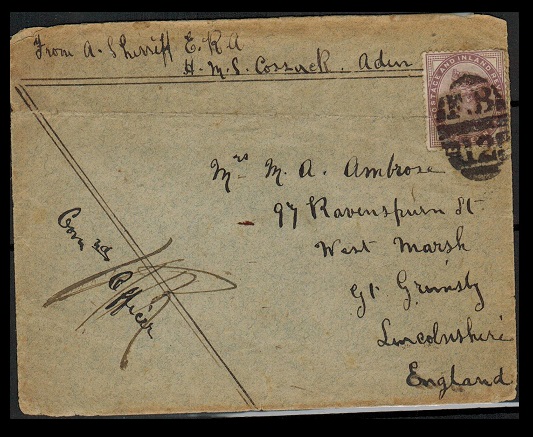 From A. Shirriff E.R.A
H.M.S. Cossack. Aden
POSTAGE AND INLAND RE
F.B
12
Mrs M. A. Ambrose
97 Ravenspurn St
West Marsh
Gt Grimsby
Lincolnshire
England
Comdg Officer